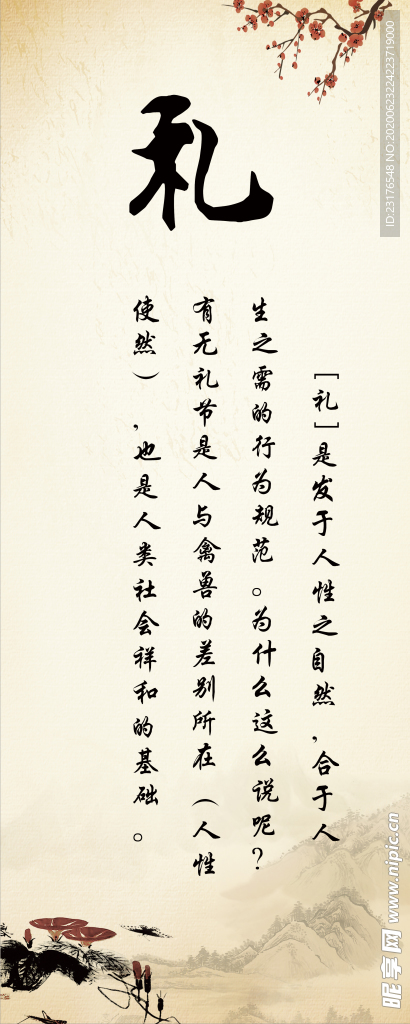 礼
[礼]是发于人性之自然，合于人
生之需的行为规范。为什么这么说呢？
有无礼节是人与禽兽的差别所在（人性
使然），也是人类社会祥和的基础。
ID:23176548 NO:20200623224223719000
昵享网 www.nipic.cn